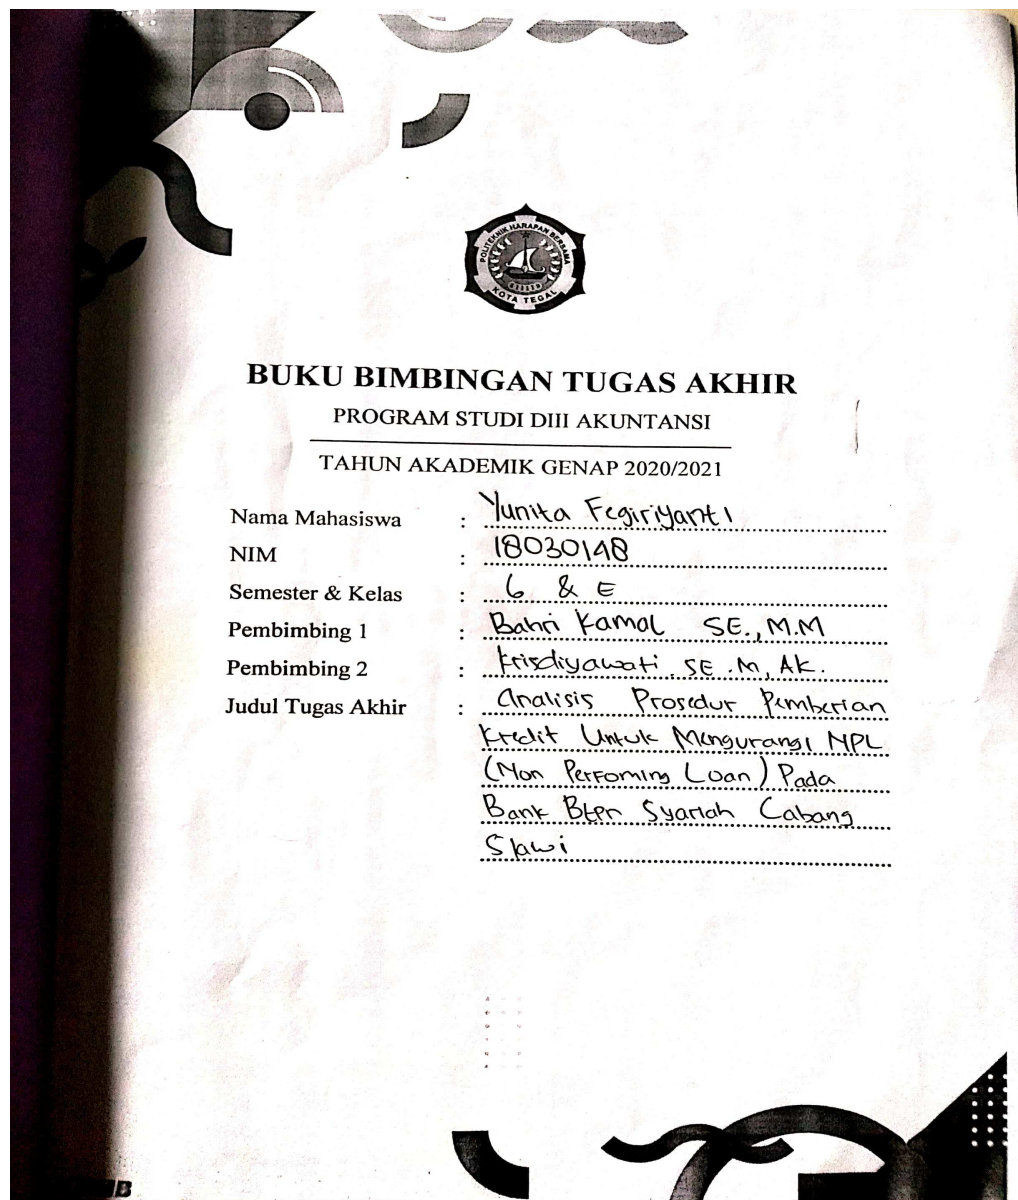 POLITEKNIK HARAPAN BERSAMA
KOTA TEGAL
BUKU BIMBINGAN TUGAS AKHIR
PROGRAM STUDI DIII AKUNTANSI
TAHUN AKADEMIK GENAP 2020/2021
Nama Mahasiswa : Yunita Fegiriyanti
NIM : 18030148
Semester & Kelas : 6 & E
Pembimbing 1 : Bahri Kamal SE., M.M
Pembimbing 2 : Krisdiyawati, SE .M, AK.
Judul Tugas Akhir : Analisis Prosedur Pemberian
Kredit Untuk Mengurangi NPL
(Non Perfoming Loan) Pada
Bank Btpn Syariah Cabang
Slawi